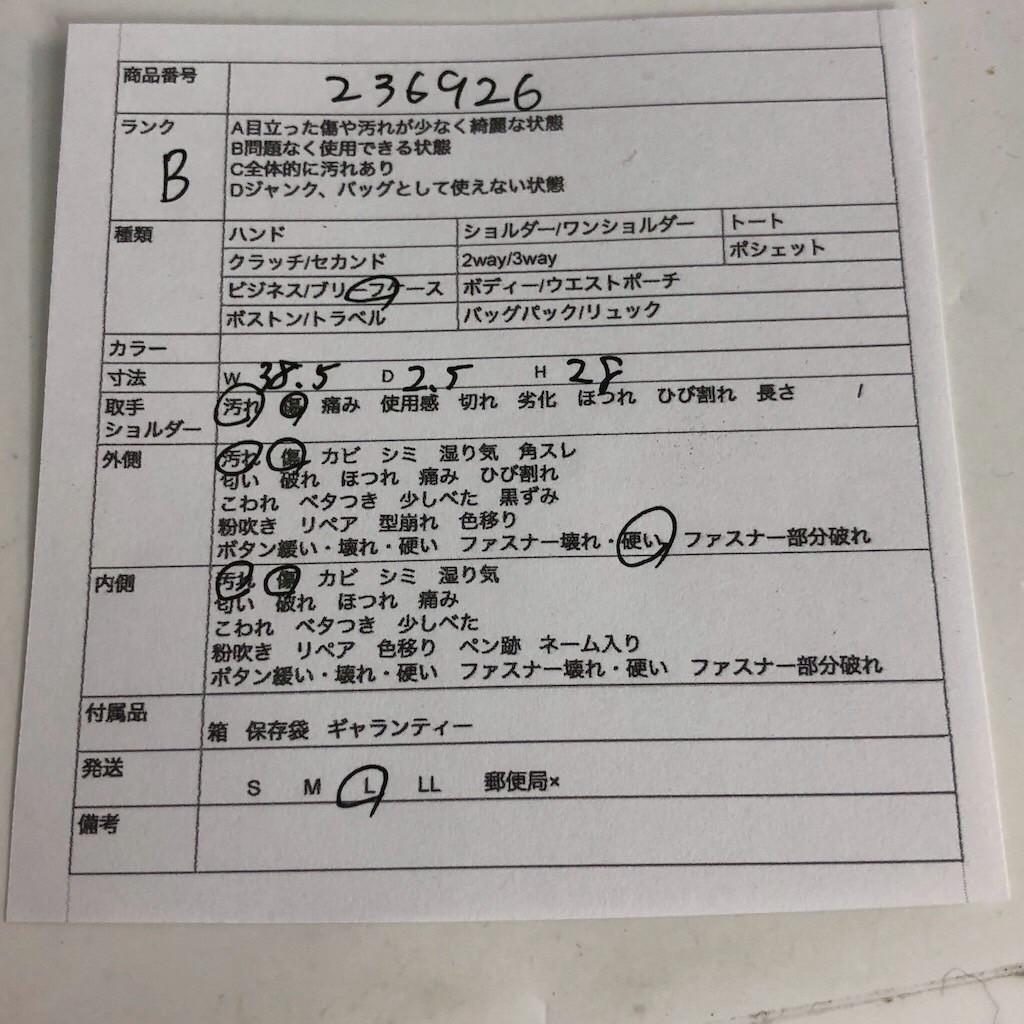 商品番号 236926
ランク B
A目立った傷や汚れが少なく綺麗な状態
B問題なく使用できる状態
C全体的に汚れあり
Dジャンク、バッグとして使えない状態
種類 ハンド ショルダー/ワンショルダー トート
クラッチ/セカンド 2way/3way ポシェット
ビジネス/ブリーフケース ボディー/ウエストポーチ
ボストン/トラベル バッグパック/リュック
カラー
寸法 W 38.5 D 2.5 H 28
取手 汚れ 傷 痛み 使用感 切れ 劣化 ほつれ ひび割れ 長さ /
ショルダー
外側 汚れ 傷 カビ シミ 湿り気 角スレ
匂い 破れ ほつれ 痛み ひび割れ
こわれ ベタつき 少しべた 黒ずみ
粉吹き リペア 型崩れ 色移り
ボタン緩い・壊れ・硬い ファスナー壊れ・硬い ファスナー部分破れ
内側 汚れ 傷 カビ シミ 湿り気
匂い 破れ ほつれ 痛み
こわれ ベタつき 少しべた
粉吹き リペア 色移り ペン跡 ネーム入り
ボタン緩い・壊れ・硬い ファスナー壊れ・硬い ファスナー部分破れ
付属品 箱 保存袋 ギャランティー
発送 S M L LL 郵便局×
備考